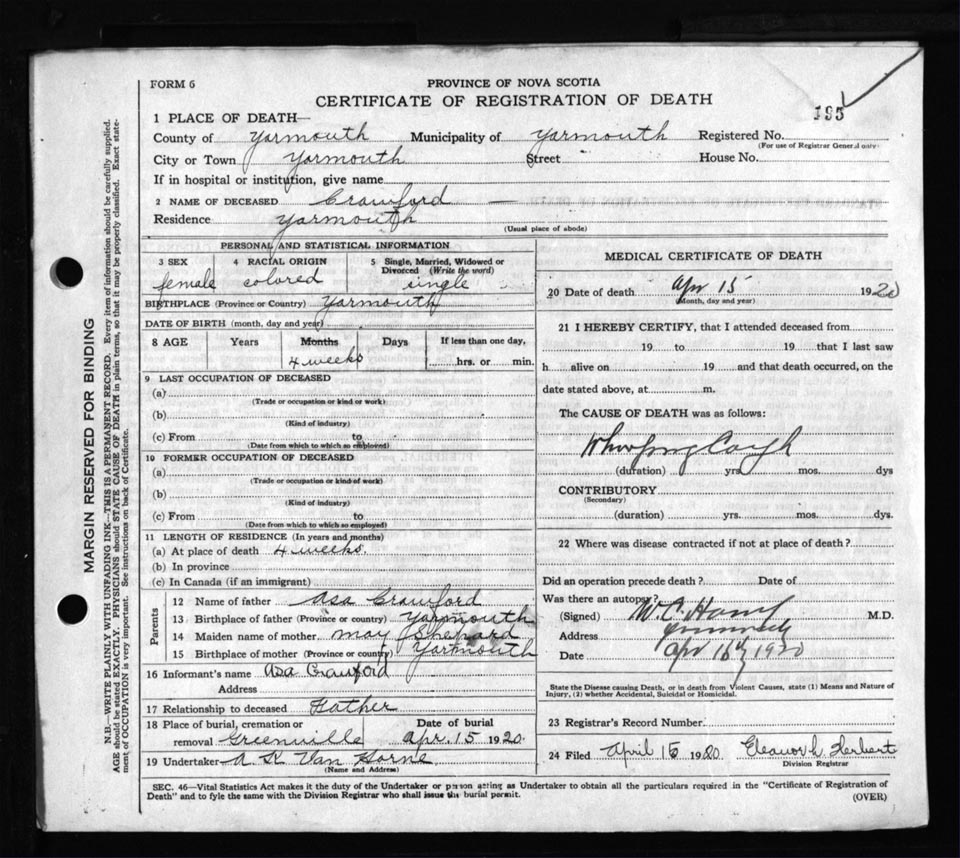 FORM 6
PROVINCE OF NOVA SCOTIA
CERTIFICATE OF REGISTRATION OF DEATH
195
1 PLACE OF DEATH—
County of Yarmouth Municipality of Yarmouth Registered No.
(For use of Registrar General only)
City or Town Yarmouth Street House No.
If in hospital or institution, give name
2 NAME OF DECEASED Crawford —
Residence Yarmouth
(Usual place of abode)
PERSONAL AND STATISTICAL INFORMATION
3 SEX 4 RACIAL ORIGIN 5 Single, Married, Widowed or Divorced (Write the word)
female colored single
BIRTHPLACE (Province or Country) Yarmouth
DATE OF BIRTH (month, day and year)
8 AGE Years Months Days If less than one day,
4 weeks hrs. or min.
9 LAST OCCUPATION OF DECEASED
(a)
(Trade or occupation or kind or work)
(b)
(Kind of industry)
(c) From to
(Date from which to which so employed)
10 FORMER OCCUPATION OF DECEASED
(a)
(Trade or occupation or kind of work)
(b)
(Kind of industry)
(c) From to
(Date from which to which so employed)
11 LENGTH OF RESIDENCE (In years and months)
(a) At place of death 4 weeks.
(b) In province
(c) In Canada (if an immigrant)
Parents
12 Name of father Asa Crawford
13 Birthplace of father (Province or country) Yarmouth
14 Maiden name of mother May Shepard
15 Birthplace of mother (Province or country) Yarmouth
16 Informant's name Asa Crawford
Address
17 Relationship to deceased Father
18 Place of burial, cremation or Date of burial
removal Greenville Apr. 15 1920
19 Undertaker A K Van Horne
(Name and Address)
MEDICAL CERTIFICATE OF DEATH
20 Date of death Apr 15 1920
(Month, day and year)
21 I HEREBY CERTIFY, that I attended deceased from
19 to 19 that I last saw
h alive on 19 and that death occurred, on the
date stated above, at m.
The CAUSE OF DEATH was as follows:
Whooping Cough
(duration) yrs. mos. dys
CONTRIBUTORY
(Secondary)
(duration) yrs. mos. dys.
22 Where was disease contracted if not at place of death?
Did an operation precede death? Date of
Was there an autopsy?
(Signed) W. C. M.D.
Address
Date Apr 16 1920
State the Disease causing Death, or in death from Violent Causes, state (1) Means and Nature of
Injury, (2) whether Accidental, Suicidal or Homicidal.
23 Registrar's Record Number
24 Filed April 16 1920 Eleanor L. Herbert
Division Registrar
SEC. 46—Vital Statistics Act makes it the duty of the Undertaker or person acting as Undertaker to obtain all the particulars required in the "Certificate of Registration of
Death" and to fyle the same with the Division Registrar who shall issue the burial permit.
(OVER)
MARGIN RESERVED FOR BINDING
N.B.—WRITE PLAINLY WITH UNFADING INK—THIS IS A PERMANENT RECORD. Every item of information should be carefully supplied.
AGE should be stated EXACTLY. PHYSICIANS should STATE CAUSE OF DEATH in plain terms, so that it may be properly classified. Exact state-
ment of OCCUPATION is very important. See instructions on back of Certificate.